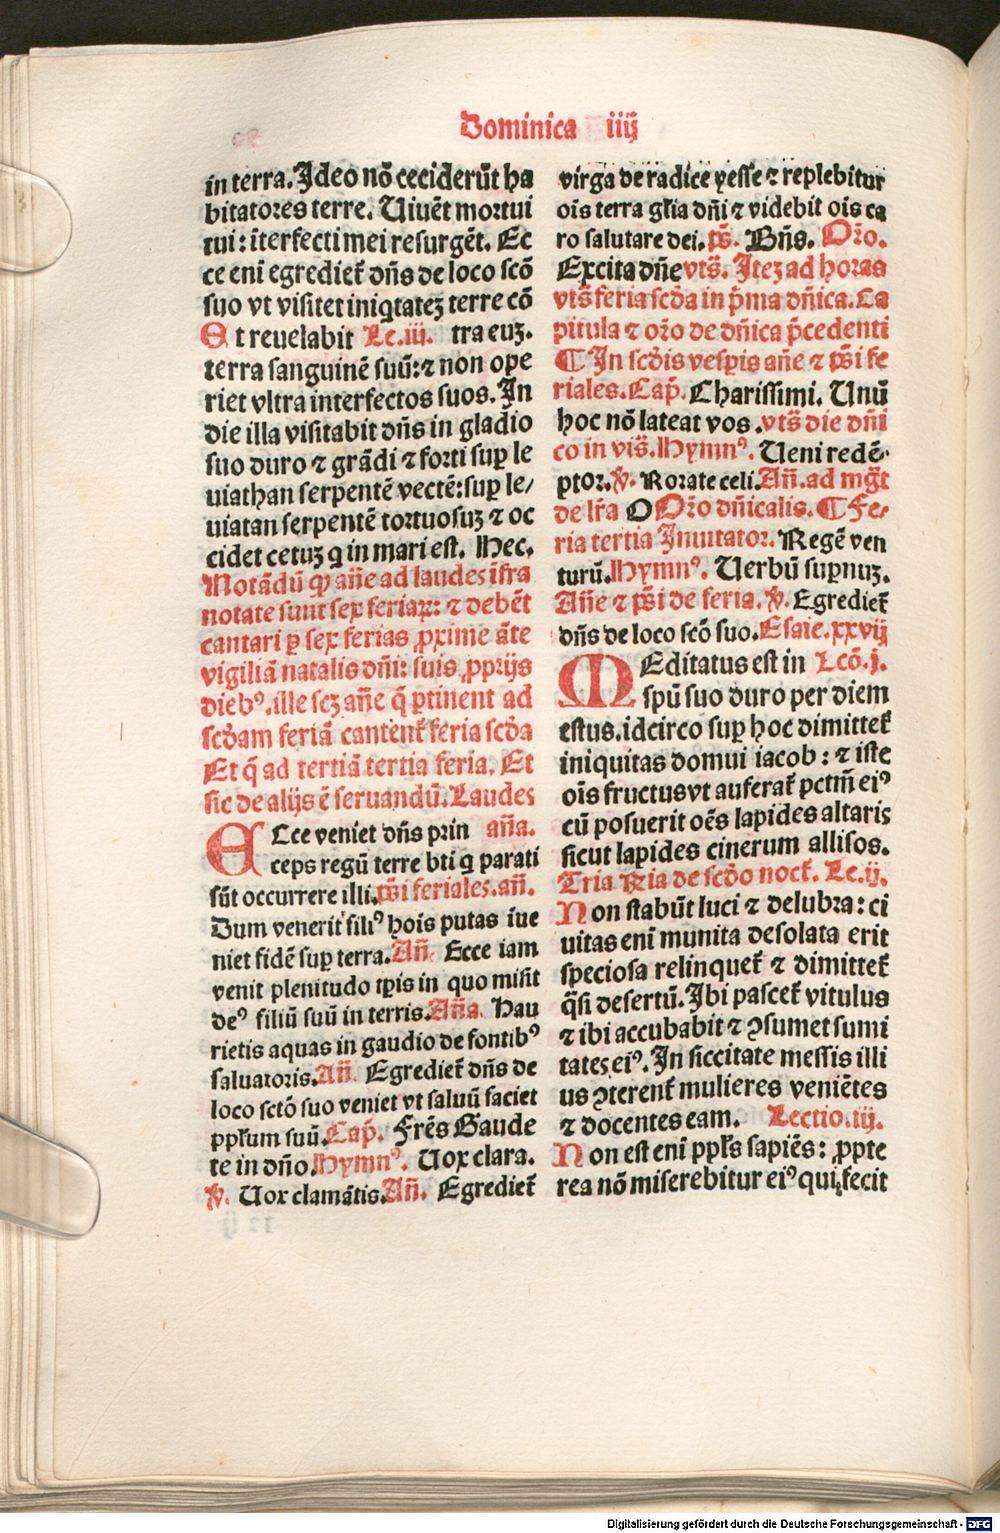 Dominica iiij
in terra. Ideo nõ ceciderũt ha
bitatores terre. Uiuẽt mortui
tui: ĩterfecti mei resurgẽt. Ec
ce enĩ egrediet̃ dñs de loco scõ
suo vt visitet iniq̃tatez terre cõ
Et reuelabit Le.iij. tra euz.
terra sanguinẽ suũ: ⁊ non ope
riet vltra interfectos suos. In
die illa visitabit dñs in gladio
suo duro ⁊ grãdi ⁊ forti suꝑ le
uiathan serpentẽ vectẽ: suꝑ le/
uiatan serpentẽ tortuosuz ⁊ oc
cidet cetuz q̃ in mari est. Hec.
Notãdũ ꝙ añe ad laudes ĩfra
notate sunt sex feriaꝝ: ⁊ debẽt
cantari ꝑ sex ferias ꝓxime ãte
vigiliã natalis dñi: suis ꝓprijs
diebꝰ. ille scꝫ añe q̃ ꝑtinent ad
scd̃am feriã cantent̃ feria scd̃a
Et q̃ ad tertiã tertia feria. Et
sic de alijs ẽ seruandũ. Laudes
ECce veniet dñs prin aña.
ceps regũ terre bti q̃ parati
sũt occurrere illi. p̃si feriales. añ.
Dum venerit filiꝰ hois putas iue
niet fidẽ suꝑ terra. Añ. Ecce iam
venit plenitudo tp̃is in quo misit
deꝰ filiũ suũ in terris. Aña. Hau
rietis aquas in gaudio de fontibꝰ
saluatoris. Añ. Egrediet̃ dñs de
loco sctõ suo veniet vt saluũ faciet
pp̃lum suũ. Cap̃. Frẽs Gaude
te in dño. Hymnꝰ. Uox clara.
℣. Uox clamãtis. Añ. Egrediet̃
virga de radice yesse ⁊ replebitur
oĩs terra gl̃ia dñi ⁊ videbit oĩs ca
ro salutare dei. p̃s. Bñs. Or̃o.
Excita dñe vts̃. Itez ad horas
vts̃ feria scd̃a in p̃ma dñica. Ca
pitula ⁊ or̃o de dñica p̃cedenti
¶ In scd̃is vesꝑis añe ⁊ p̃si fe
riales. Cap̃. Charissimi. Unũ
hoc nõ lateat vos. vts̃ die dñi
co in vis̃. Hymnꝰ. Ueni redẽ-
ptor. ℣. Rorate celi. Añ. ad mg̃t
de l̃ra O Or̃o dñicalis. ¶ Fe-
ria tertia Inuitator. Regẽ ven
turũ. Hymnꝰ. Uerbũ suꝑnuz.
Añe ⁊ p̃si de feria. ℣. Egrediet̃
dñs de loco scõ suo. Esaie. xxvij
MEditatus est in Lcõ.j.
spũ suo duro per diem
estus. idcirco suꝑ hoc dimittet̃
iniquitas domui iacob: ⁊ iste
oĩs fructus vt auferat̃ pctm̃ eiꝰ
cũ posuerit oẽs lapides altaris
sicut lapides cinerum allisos.
Tria R̃ia de scd̃o noct̃. Le.ij.
Non stabũt luci ⁊ delubra: ci
uitas enĩ munita desolata erit
speciosa relinquet̃ ⁊ dimittet̃
q̃si desertũ. Ibi pascet̃ vitulus
⁊ ibi accubabit ⁊ ꝯsumet sumi
tates eiꝰ. In siccitate messis illi
us ꝯterent̃ mulieres veniẽtes
⁊ docentes eam. Lectio.iij.
Non est enĩ pp̃ls sapiẽs: ꝓpte
rea nõ miserebitur eiꝰ qui fecit
Digitalisierung gefördert durch die Deutsche Forschungsgemeinschaft - DFG